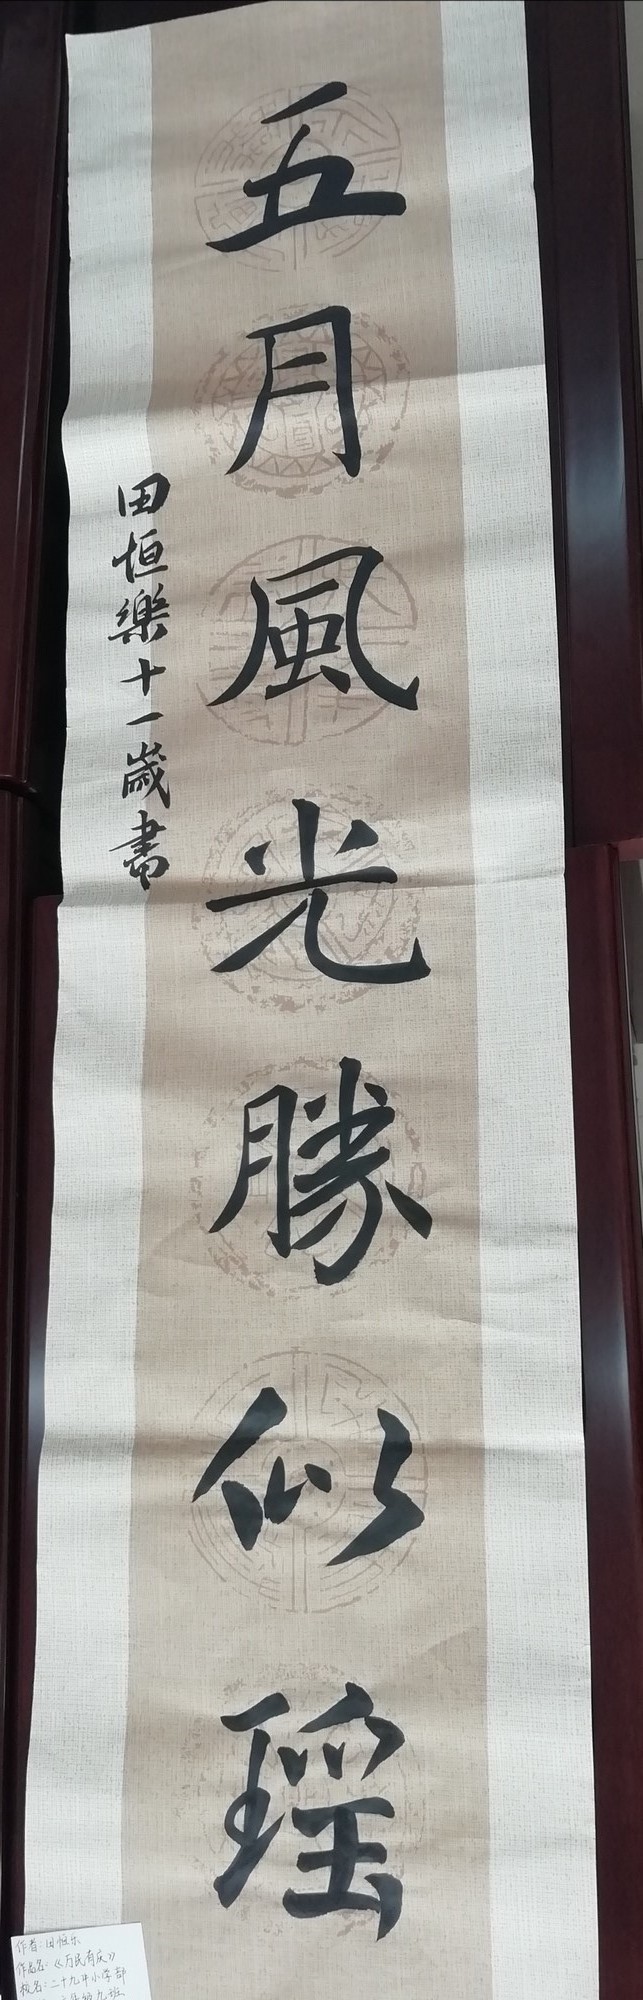 五月風光勝似瑶
田恒樂十一歲書
作者：田恒乐
作品名：《万民有庆》
校名：二十九中小学部
六年级九班